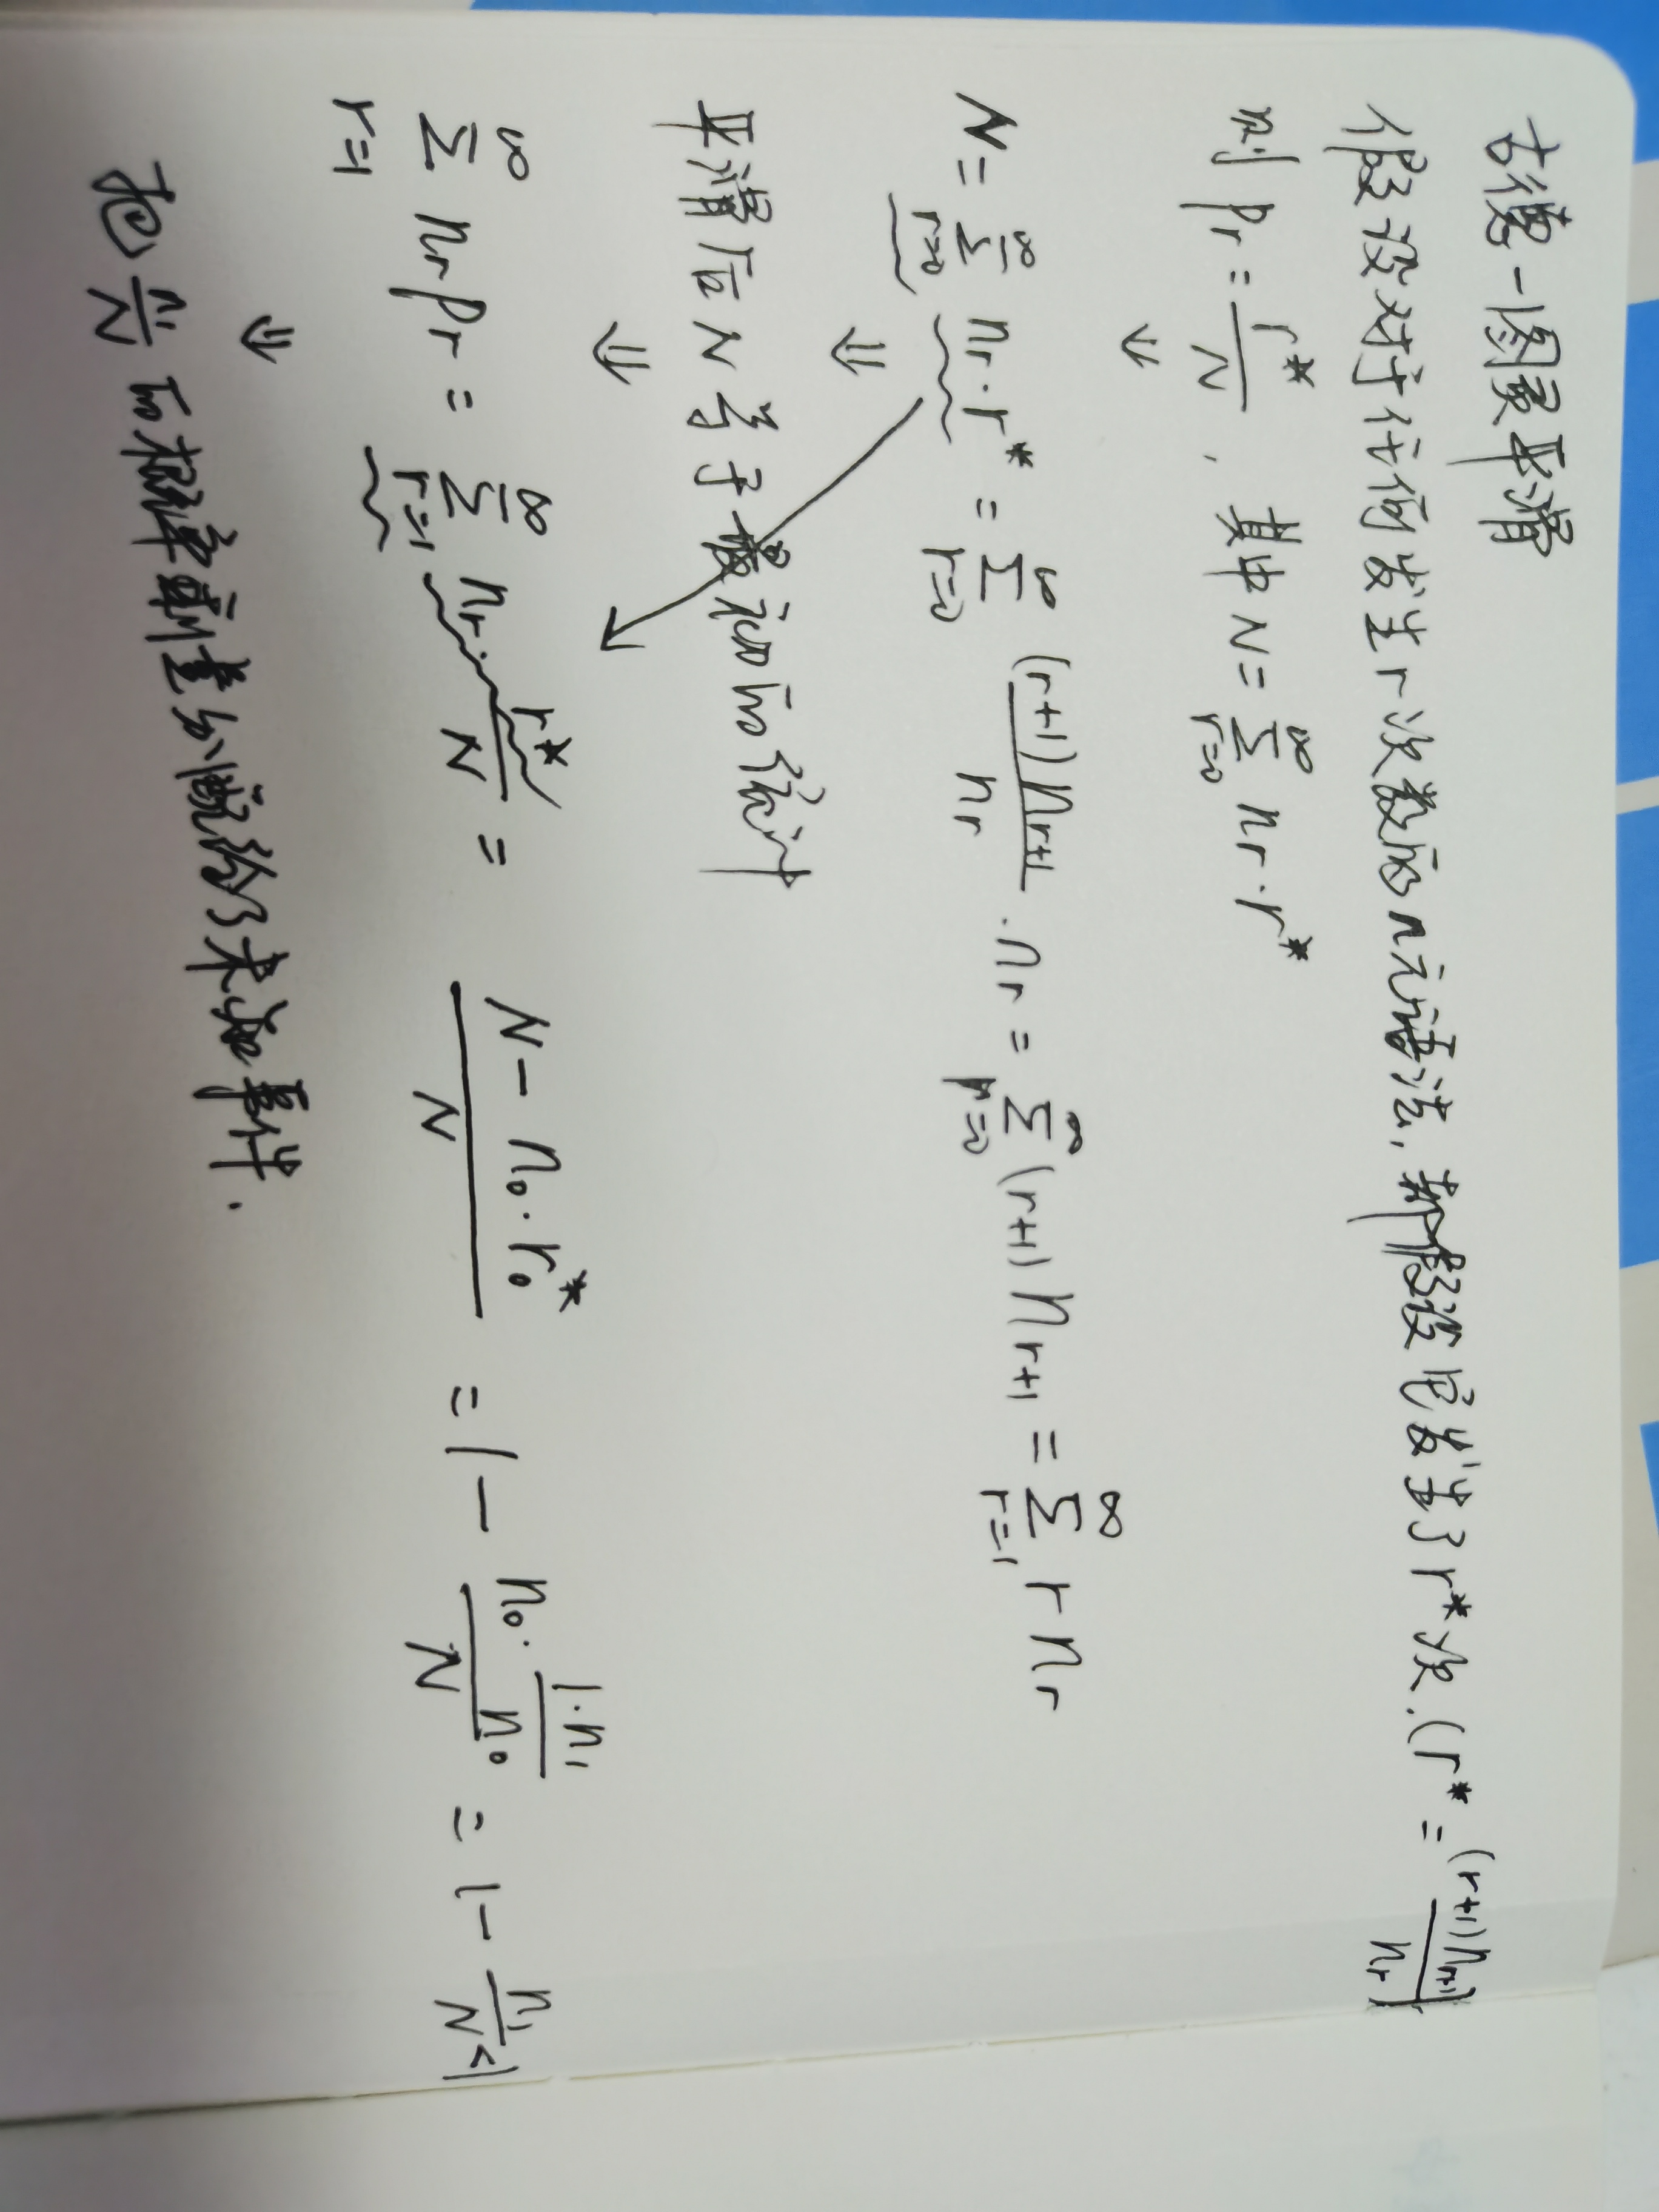 古德-图灵平滑
假设对于任何发生r次数的n元语法,都假设它发生了r*次.(r* = \frac{(r+1)n_{r+1}}{n_r})
则 p_r = \frac{r*}{N}, 其中 N = \sum_{r=0}^{∞} n_r·r*
⇓
N = \sum_{r=0}^{∞} n_r·r* = \sum_{r=0}^{∞} \frac{(r+1)n_{r+1}}{n_r}·n_r = \sum_{r=0}^{∞} (r+1)n_{r+1} = \sum_{r=1}^{∞} r n_r
⇓
平滑后N等于最初的统计
⇓
\sum_{r=1}^{∞} n_r p_r = \sum_{r=1}^{∞} n_r·\frac{r*}{N} = \frac{N - n_0·r_0^*}{N} = 1 - \frac{n_0·\frac{1·n_1}{n_0}}{N} = 1 - \frac{n_1}{N} < 1
⇓
把 \frac{n_1}{N} 的概率剩量分配给了未知事件.